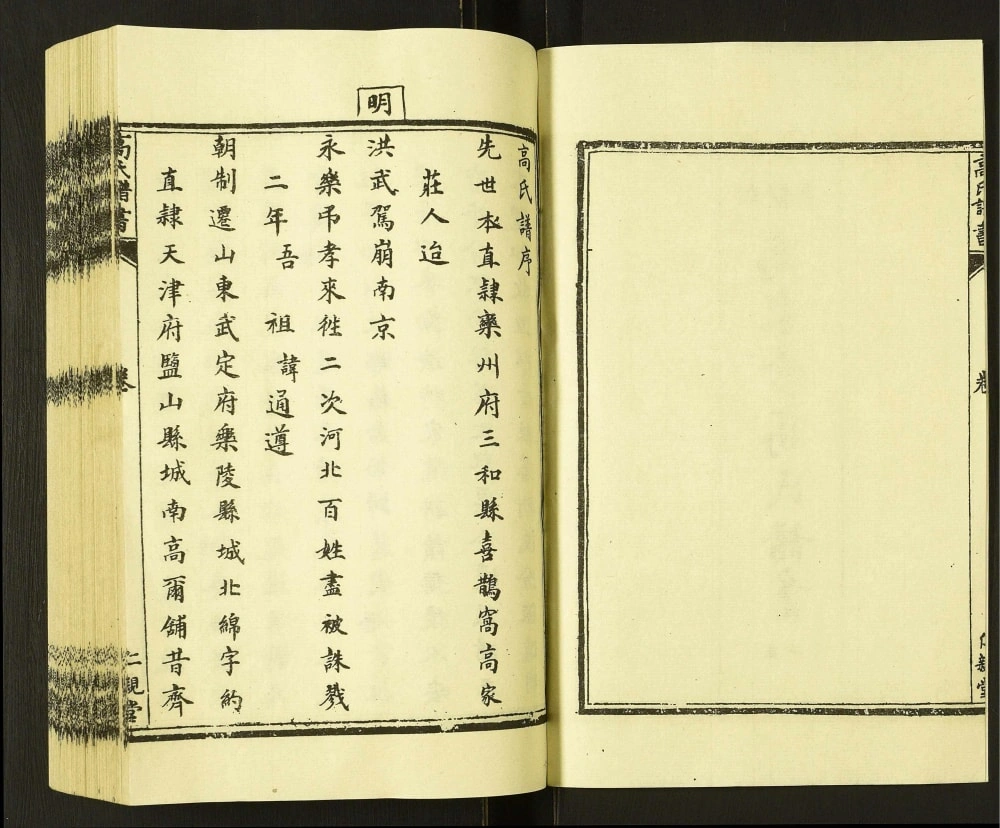 高氏譜書
卷
仁親堂
明
高氏譜序
先世本直隸欒州府三和縣喜鵲窩高家
莊人迨
洪武駕崩南京
永樂弔孝來徃二次河北百姓盡被誅戮
二年吾祖諱通遵
朝制遷山東武定府樂陵縣城北綿字約
直隸天津府鹽山縣城南高爾舖昔齊
高氏譜書
卷
仁親堂